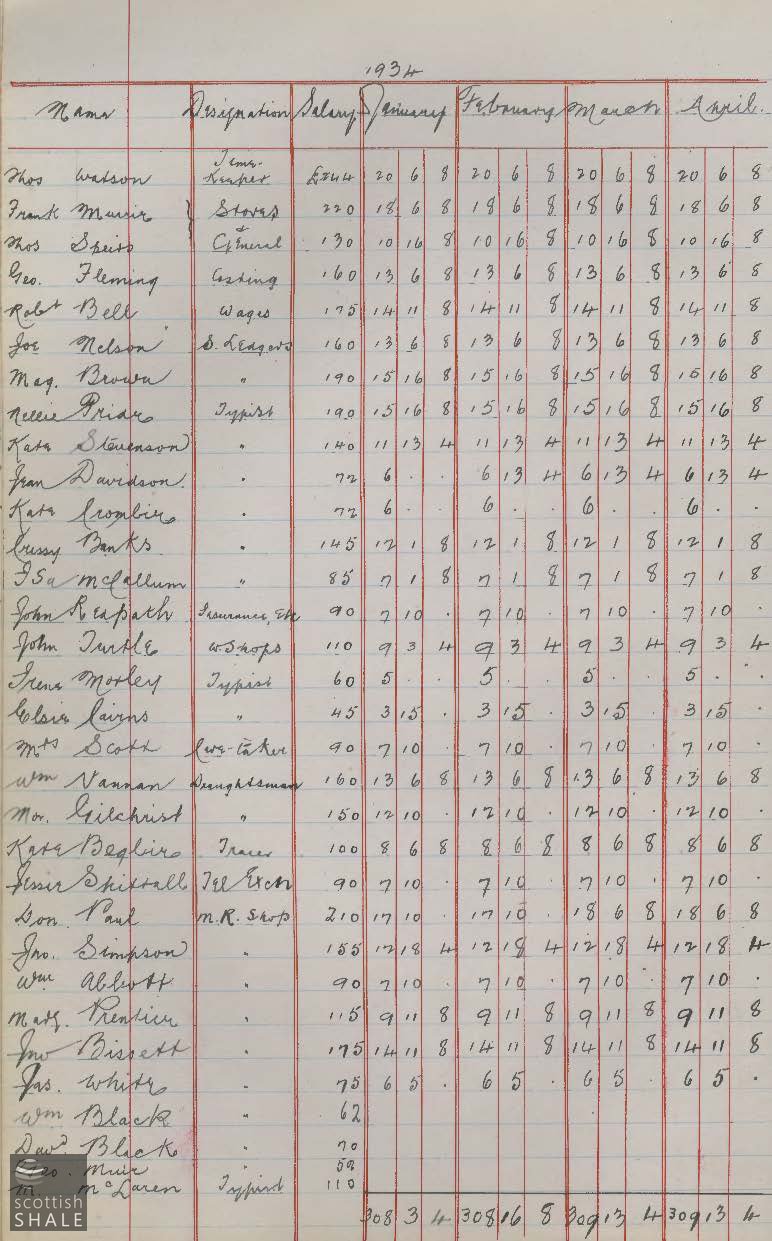 1934
Name Designation Salary January February March April.
Time-
Thos Watson Keeper £244 20 6 8 20 6 8 20 6 8 20 6 8
Frank Muir Stores 220 18 6 8 18 6 8 18 6 8 18 6 8
&
Thos Speirs General 130 10 16 8 10 16 8 10 16 8 10 16 8
Geo. Fleming Costing 160 13 6 8 13 6 8 13 6 8 13 6 8
Robt Bell Wages 175 14 11 8 14 11 8 14 11 8 14 11 8
Joe Nelson S. Ledgers 160 13 6 8 13 6 8 13 6 8 13 6 8
Mag. Brown " 190 15 16 8 15 16 8 15 16 8 15 16 8
Nellie Friar Typist 190 15 16 8 15 16 8 15 16 8 15 16 8
Kate Stevenson " 140 11 13 4 11 13 4 11 13 4 11 13 4
Jean Davidson. " 72 6 . . 6 13 4 6 13 4 6 13 4
Kate Crombie " 72 6 . . 6 . . 6 . . 6 . .
Cressy Banks " 145 12 1 8 12 1 8 12 1 8 12 1 8
Isa McCallum " 85 7 1 8 7 1 8 7 1 8 7 1 8
John Redpath Insurance, Etc 90 7 10 . 7 10 . 7 10 . 7 10 .
John Turtle W. Shops 110 9 3 4 9 3 4 9 3 4 9 3 4
Irene Morley Typist 60 5 . . 5 . . 5 . . 5 . .
Elsie Cairns " 45 3 15 . 3 15 . 3 15 . 3 15 .
Mrs Scott Care-taker 90 7 10 . 7 10 . 7 10 . 7 10 .
Wm Vannan Draughtsman 160 13 6 8 13 6 8 13 6 8 13 6 8
Gilchrist " 150 12 10 . 12 10 . 12 10 . 12 10 .
Kate Begbie Tracer 100 8 6 8 8 6 8 8 6 8 8 6 8
Jessie Skittall Tel Exch 90 7 10 . 7 10 . 7 10 . 7 10 .
Don. Paul M.R. Shop 210 17 10 . 17 10 . 18 6 8 18 6 8
Jno. Simpson " 155 12 18 4 12 18 4 12 18 4 12 18 4
Wm Abbott " 90 7 10 . 7 10 . 7 10 . 7 10 .
Madg. Prentice " 115 9 11 8 9 11 8 9 11 8 9 11 8
Jno Bissett " 175 14 11 8 14 11 8 14 11 8 14 11 8
Jas. White " 75 6 5 . 6 5 . 6 5 . 6 5 .
Wm Black " 62
Davd Black " 70
Geo. Muir " 52
M. McLaren Typist 110
308 3 4 308 16 8 309 13 4 309 13 4
scottish
SHALE